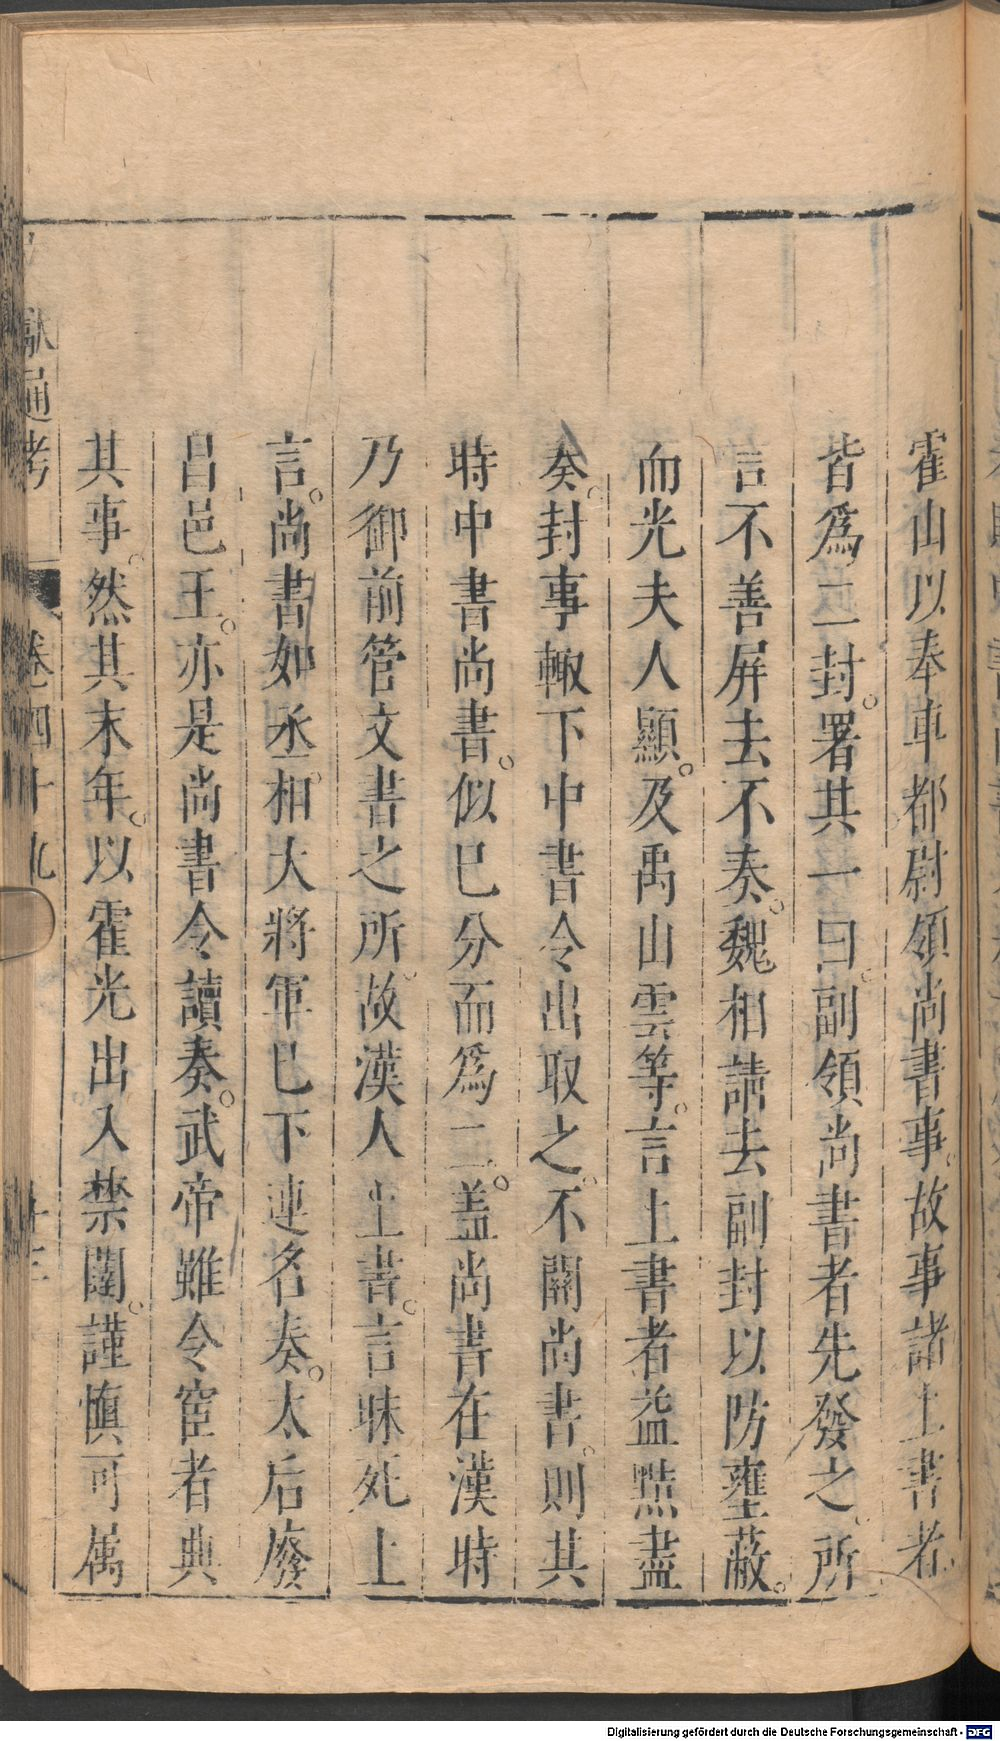 霍山以奉車都尉領尚書事故事諸上書者
皆爲二封署其一曰副領尚書者先發之所
言不善屏去不奏魏相請去副封以防壅蔽
而光夫人顯及禹山雲等言上書者益黠盡
奏封事輙下中書令出取之不關尚書則其
時中書尚書似已分而爲二蓋尚書在漢時
乃御前管文書之所故漢人上書言昧死上
言尚書如丞相大將軍已下連名奏太后廢
昌邑王亦是尚書令讀奏武帝雖令宦者典
其事然其末年以霍光出入禁闥謹慎可属
獻通考 卷四十九
Digitalisierung gefördert durch die Deutsche Forschungsgemeinschaft - DFG